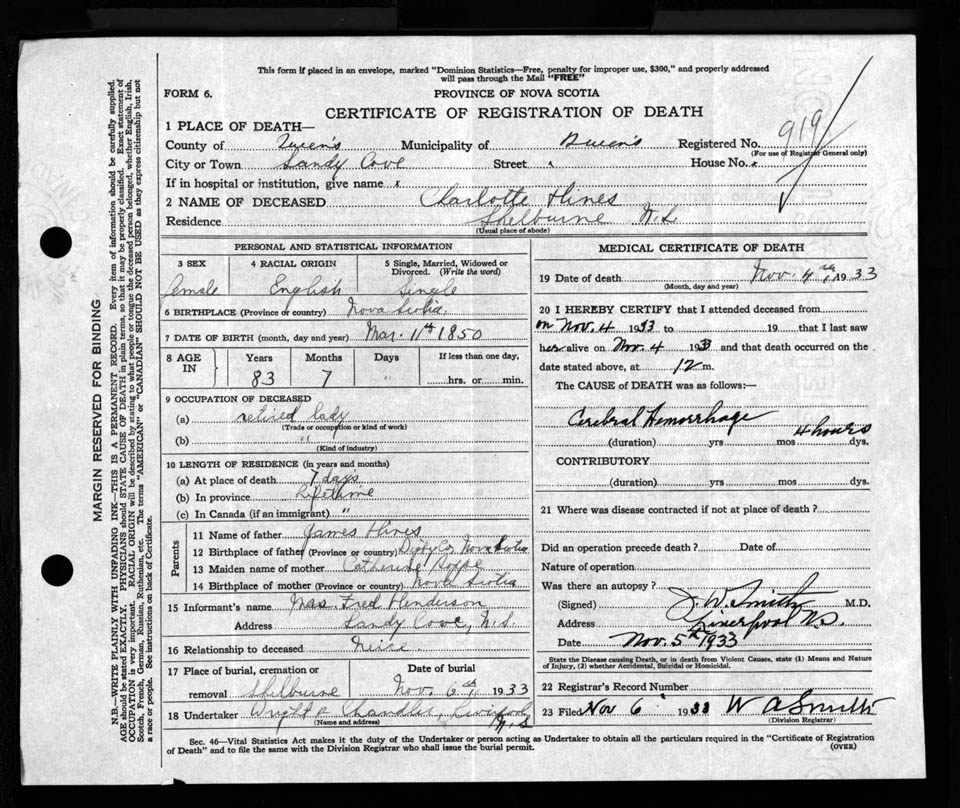 This form if placed in an envelope, marked "Dominion Statistics—Free, penalty for improper use, $300," and properly addressed
will pass through the Mail "FREE"
FORM 6.
PROVINCE OF NOVA SCOTIA
CERTIFICATE OF REGISTRATION OF DEATH
919
1 PLACE OF DEATH—
County of Queen's Municipality of Queen's Registered No.
(For use of Registrar General only)
City or Town Sandy Cove Street House No.
If in hospital or institution, give name
2 NAME OF DECEASED Charlotte Hines
Residence Shelburne N.S.
(Usual place of abode)
MARGIN RESERVED FOR BINDING
N.B.—WRITE PLAINLY WITH UNFADING INK—THIS IS A PERMANENT RECORD. Every item of information should be carefully supplied.
AGE should be stated EXACTLY. PHYSICIANS should STATE CAUSE OF DEATH in plain terms, so that it may be properly classified. Exact statement of
OCCUPATION is very important. RACIAL ORIGIN will be described by stating to what people or tongue the deceased person belonged, whether English, Irish,
Scotch, French, German, Russian, Ruthenian, etc. The terms "AMERICAN" or "CANADIAN" SHOULD NOT BE USED as they express citizenship but not
a race or people. See instructions on back of Certificate.
PERSONAL AND STATISTICAL INFORMATION
3 SEX
female
4 RACIAL ORIGIN
English
5 Single, Married, Widowed or
Divorced. (Write the word)
Single
6 BIRTHPLACE (Province or country) Nova Scotia
7 DATE OF BIRTH (month, day and year) Mar. 11th 1850
8 AGE
IN
Years
83
Months
7
Days
"
If less than one day,
hrs. or min.
9 OCCUPATION OF DECEASED
(a) retired lady
(Trade or occupation or kind of work)
(b) "
(Kind of industry)
10 LENGTH OF RESIDENCE (in years and months)
(a) At place of death 7 days
(b) In province Lifetime
(c) In Canada (if an immigrant) "
Parents
11 Name of father James Hines
12 Birthplace of father (Province or country) Digby Co. Nova Scotia
13 Maiden name of mother Catherine
14 Birthplace of mother (Province or country) Nova Scotia
15 Informant's name Mrs. Fred Henderson
Address Sandy Cove, N.S.
16 Relationship to deceased Neice
17 Place of burial, cremation or
removal Shelburne
Date of burial
Nov. 6th 1933
18 Undertaker Chandler, Liverpool
N.S.
(Name and address)
MEDICAL CERTIFICATE OF DEATH
19 Date of death Nov. 4th, 1933
(Month, day and year)
20 I HEREBY CERTIFY that I attended deceased from
on Nov. 4 1933 to 19 that I last saw
her alive on Nov. 4 1933 and that death occurred on the
date stated above, at 12 m.
The CAUSE of DEATH was as follows:—
Cerebral Hemorrhage
(duration) yrs mos 4 hours dys.
CONTRIBUTORY
(duration) yrs. mos dys.
21 Where was disease contracted if not at place of death?
Did an operation precede death? Date of
Nature of operation
Was there an autopsy?
(Signed) J. W. Smith M.D.
Address Liverpool N.S.
Date Nov. 5th 1933
State the Disease causing Death, or in death from Violent Causes, state (1) Means and Nature
of Injury, (2) whether Accidental, Suicidal or Homicidal.
22 Registrar's Record Number
23 Filed Nov 6 1933 W A Smith
(Division Registrar)
Sec. 46—Vital Statistics Act makes it the duty of the Undertaker or person acting as Undertaker to obtain all the particulars required in the "Certificate of Registration
of Death" and to file the same with the Division Registrar who shall issue the burial permit.
(OVER)